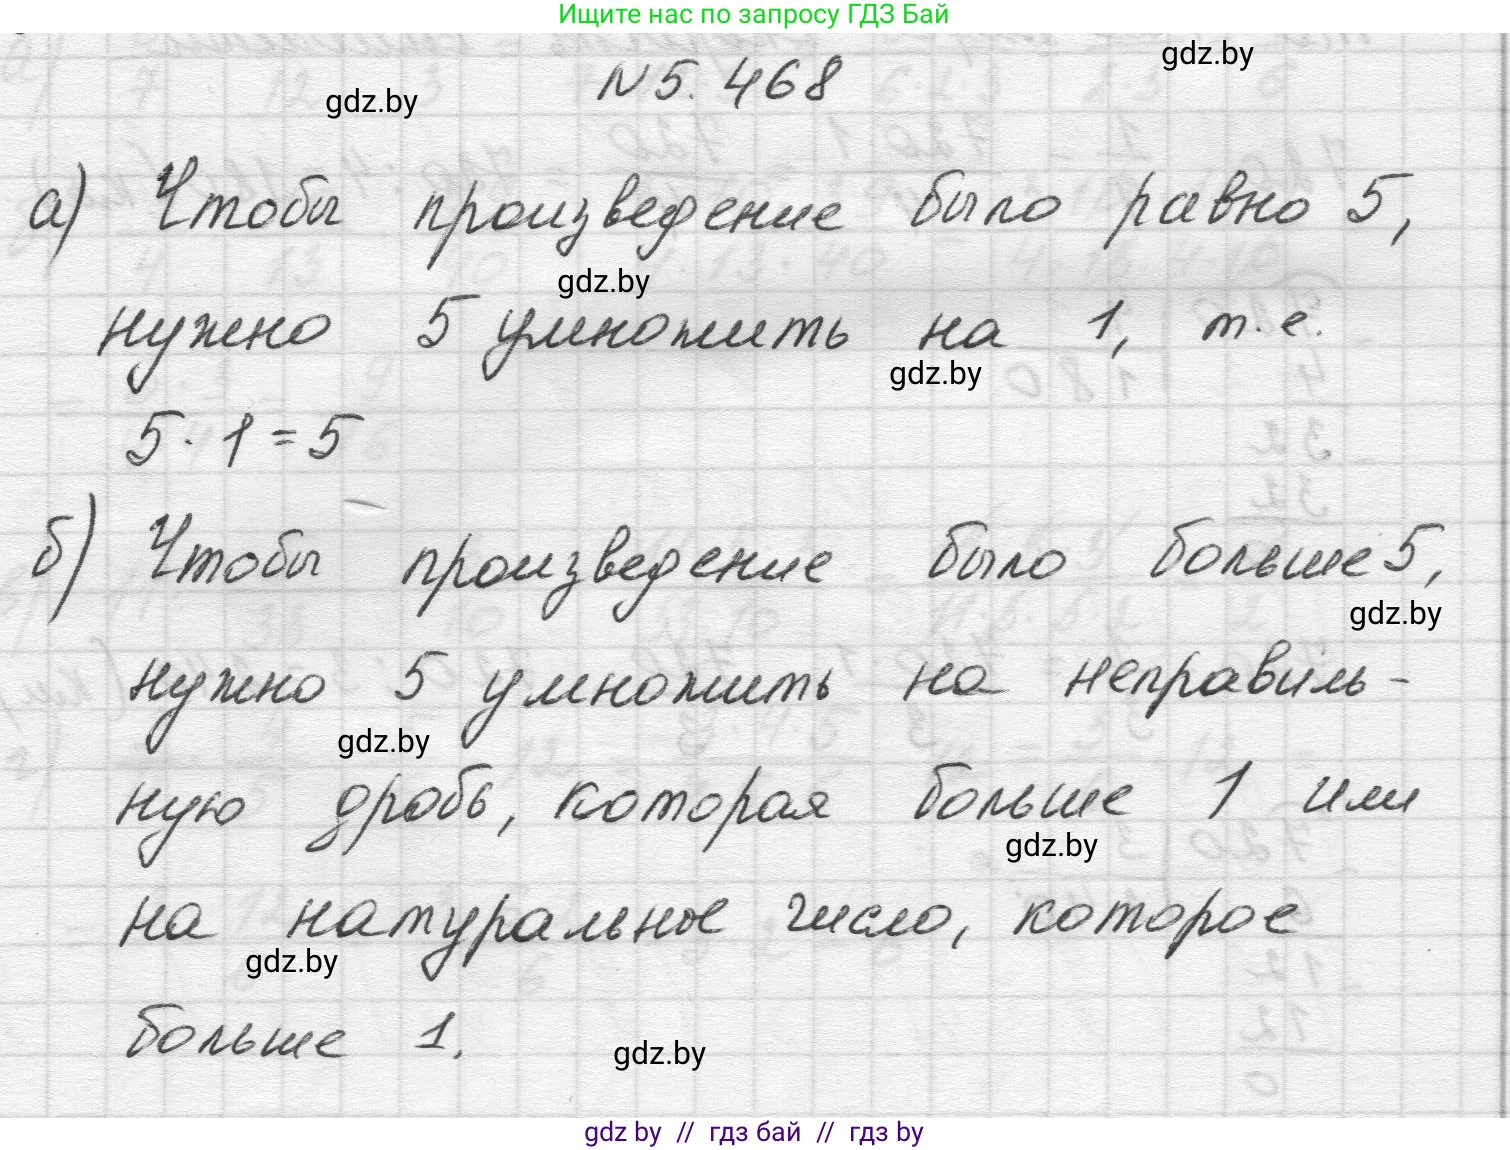 Ищите нас по запросу ГДЗ Бай
gdz.by
N 5.468
gdz.by
а) Чтобы произведение было равно 5,
gdz.by
нужно 5 умножить на 1, т.е.
gdz.by
5 · 1 = 5
б) Чтобы произведение было больше 5,
gdz.by
нужно 5 умножить на неправиль-
gdz.by
ную дробь, которая больше 1 или
gdz.by
на натуральное число, которое
gdz.by
больше 1.
gdz.by
gdz by // гдз бай // гдз by